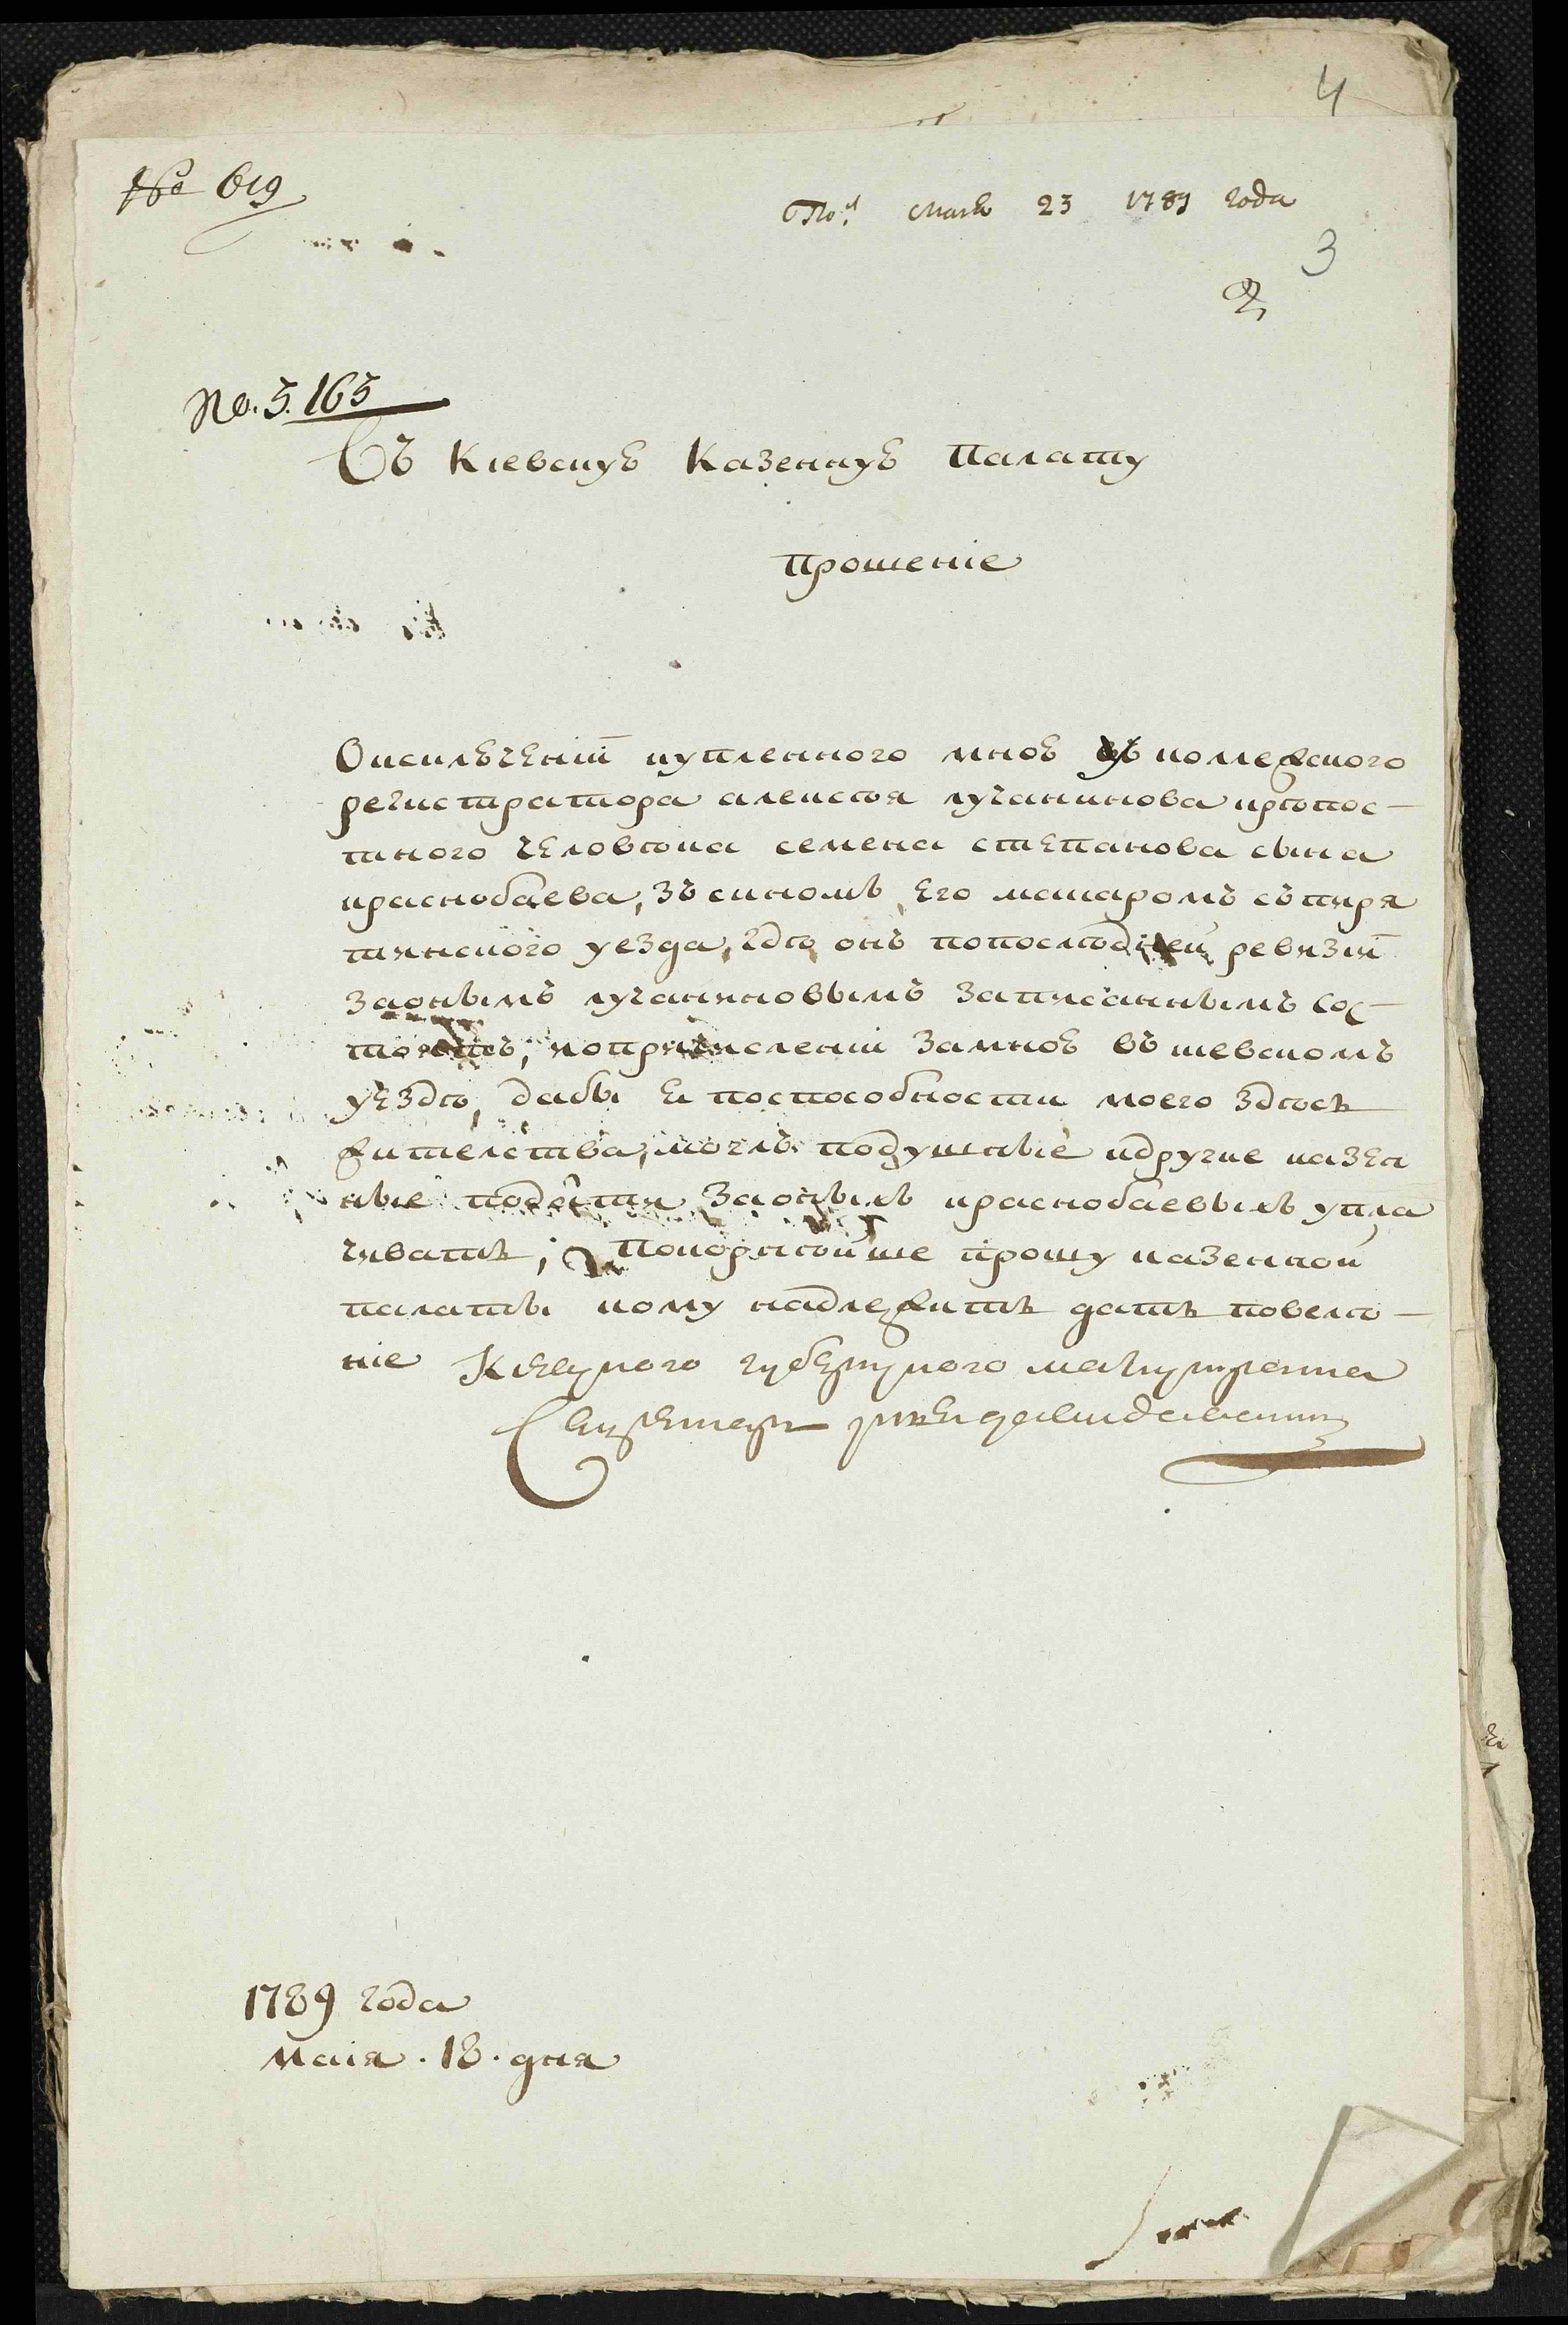 4
№ 619
По.д маія 23 1789 года
3
2
No. 5.165
Въ Кіевскую Казенную Палату
Прошеніе
О исключеніи купленного мною у колежского
регистратора алексѣя лучанинова крѣпос-
тного человѣка семена степанова сына
краснобаева, зъ сыномъ его макаромъ съ пиря
тинского уезда, гдѣ онъ попослѣдней ревизіи
заонымъ лучаниновымъ записаннымъ сос-
тоитъ, ипопричисленіи замною въ киевскомъ
уѣздѣ, дабы я поспособности моего здѣсь
жителства, могъ подушные идругие казен
ные подати заонымъ краснобаевымъ упла
чивать; Покорнѣйше прошу казенной
палаты кому надлежитъ дать повелѣ-
ніе Киевского губернского магистрата
Секретарь
1789 года
маія. 18. дня